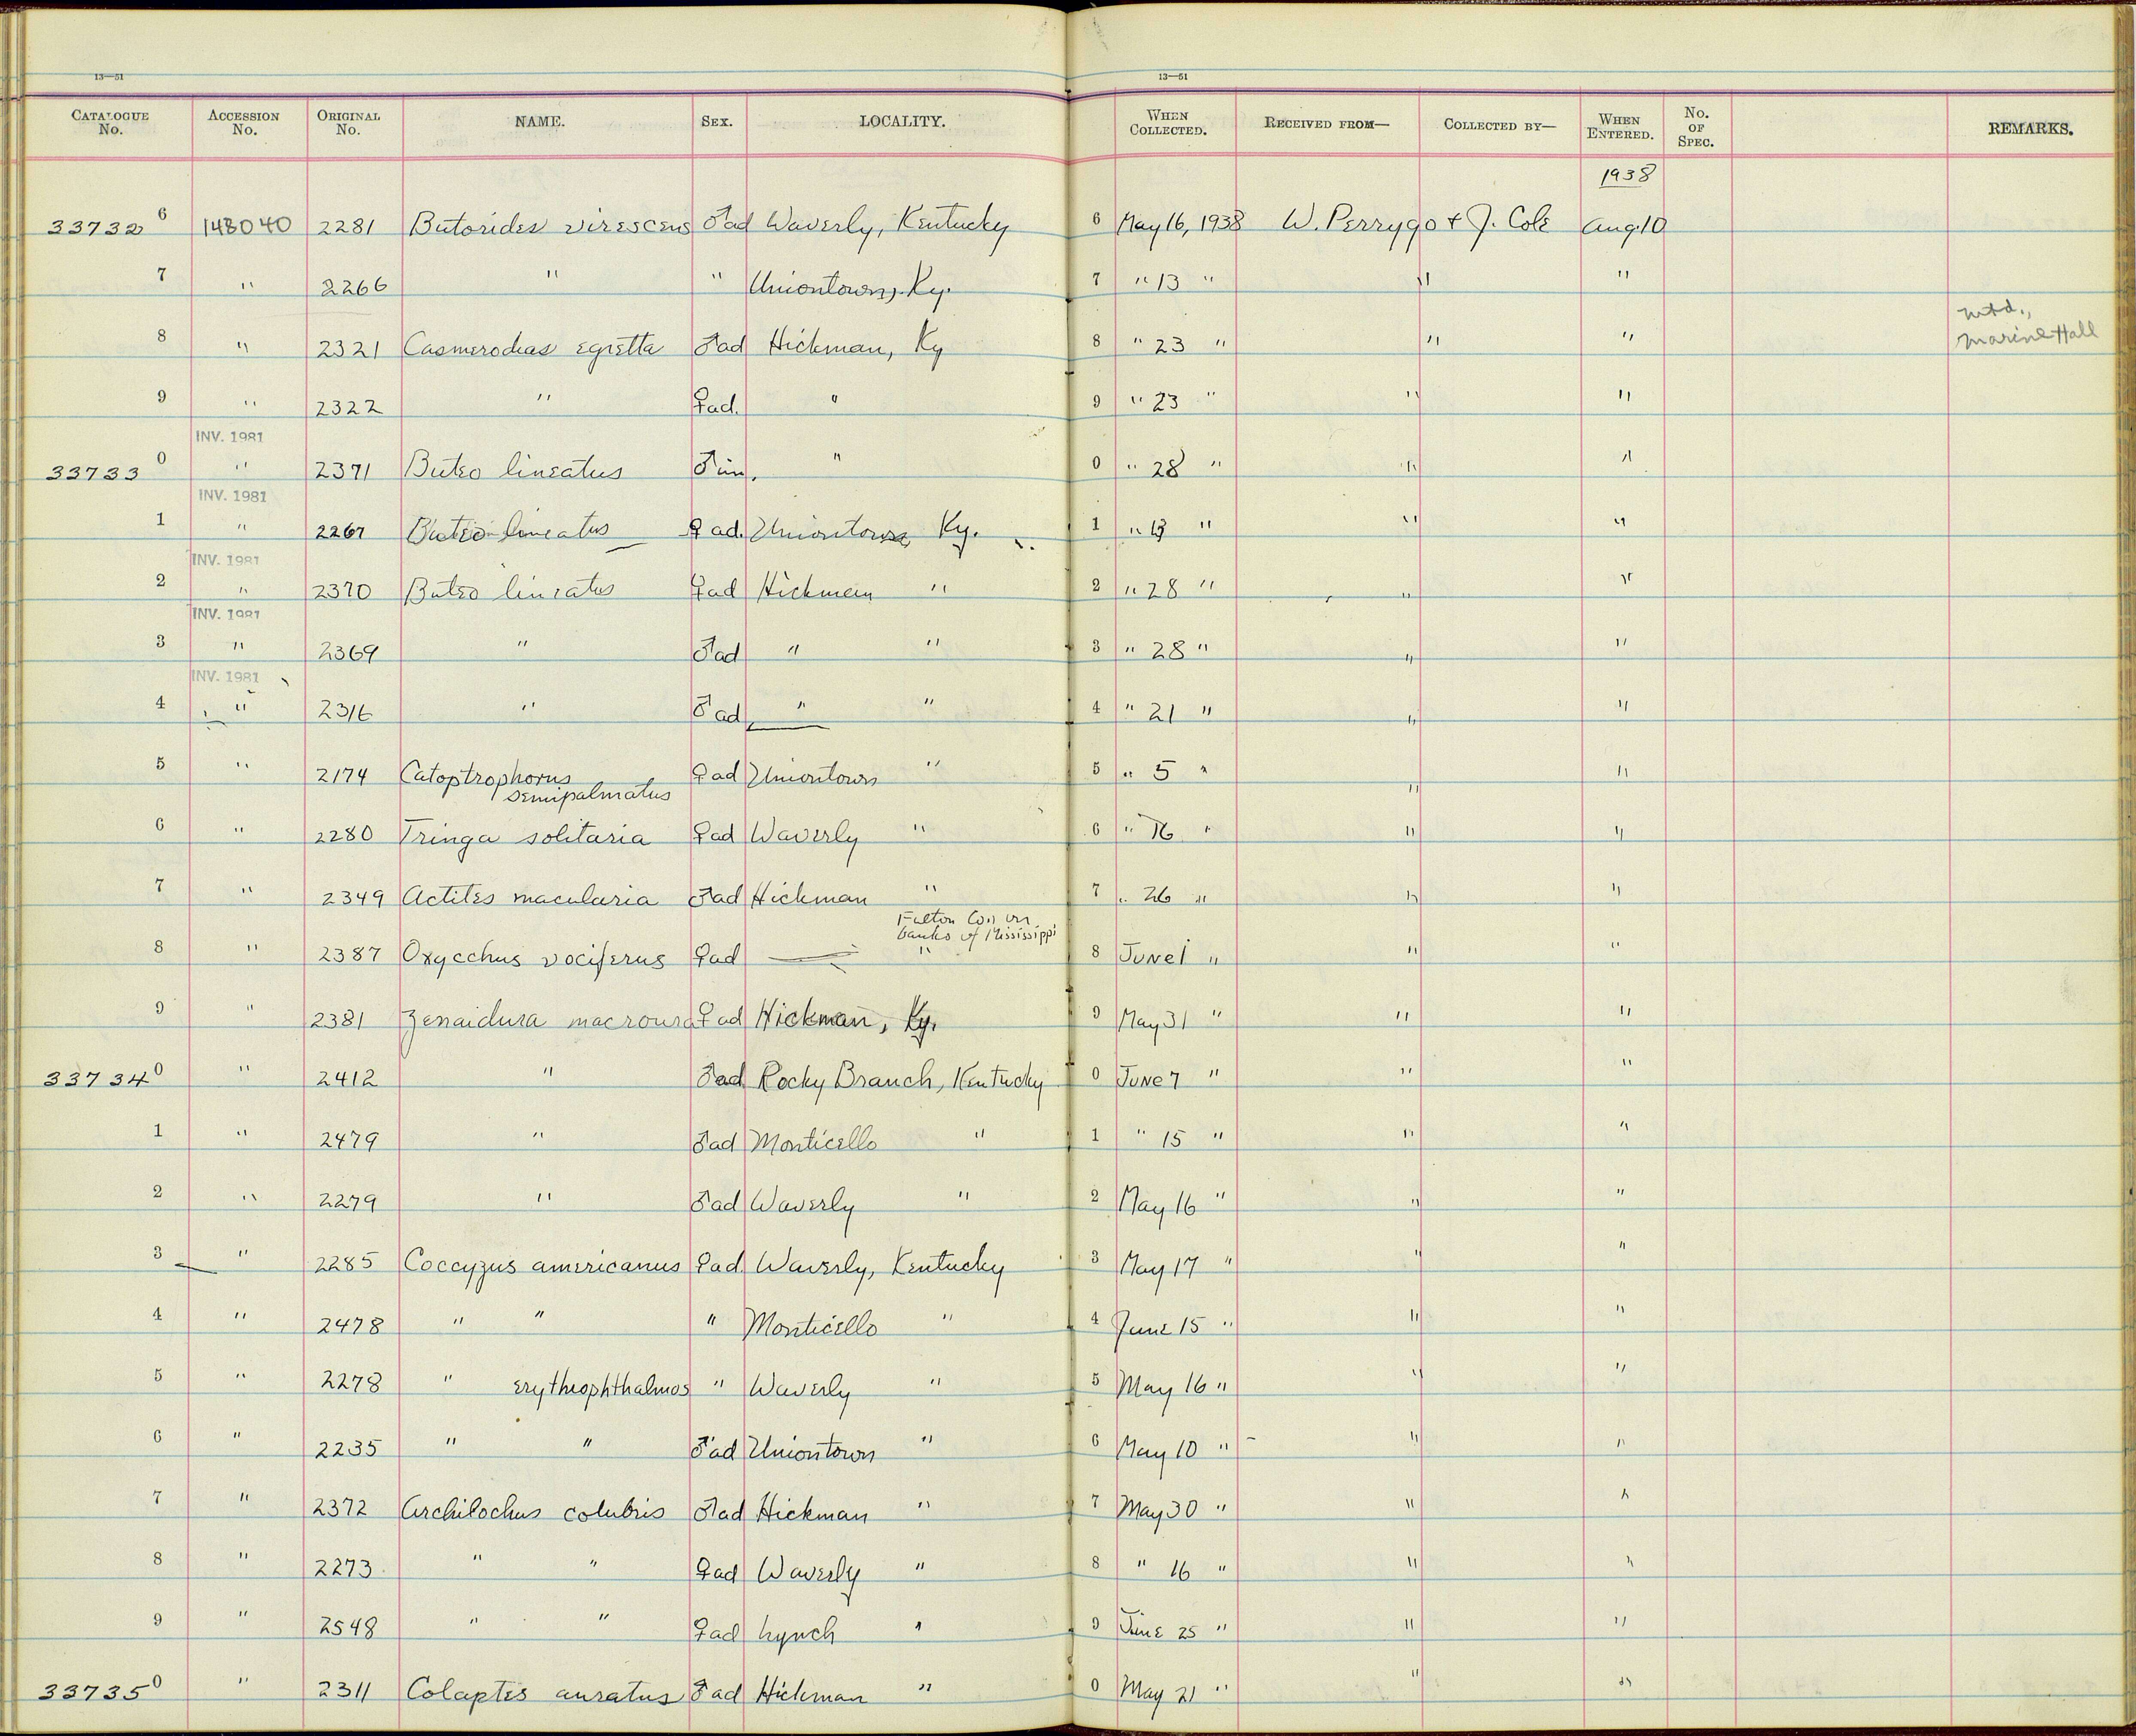 13—51 13—51
CATALOGUE No. ACCESSION No. ORIGINAL No. NAME. SEX. LOCALITY. WHEN COLLECTED. RECEIVED FROM— COLLECTED BY— WHEN ENTERED. No. OF SPEC. REMARKS.
1938
33732 6 148040 2281 Butorides virescens ♂ad Waverly, Kentucky 6 May 16, 1938 W. Perrygo + J. Cole Aug. 10
7 " 2266 " " Uniontown, Ky. 7 " 13 " " "
mtd.,
8 " 2321 Casmerodias egretta ♂ad Hickman, Ky 8 " 23 " " " Marine Hall
9 " 2322 " ♀ad. " 9 " 23 " " "
INV. 1981
33733 0 " 2371 Buteo lineatus ♂im. " 0 " 28 " " "
INV. 1981
1 " 2267 Buteo lineatus ♀ ad. Uniontown Ky. 1 " 13 " " "
INV. 1981
2 " 2370 Buteo lineatus ♀ad Hickman " 2 " 28 " " "
INV. 1981
3 " 2369 " ♂ad " " 3 " 28 " " "
INV. 1981
4 " 2316 " ♂ad " " 4 " 21 " " "
5 " 2174 Catoptrophorus ♀ad Uniontown " 5 " 5 " " "
semipalmatus
6 " 2280 Tringa solitaria ♀ad Waverly " 6 " 16 " " "
7 " 2349 Actitis macularia ♂ad Hickman " 7 " 26 " " "
Fulton Co., on
banks of Mississippi
8 " 2387 Oxyechus vociferus ♀ad — " 8 June 1 " " "
9 " 2381 Zenaidura macroura ♀ad Hickman, Ky. 9 May 31 " " "
33734 0 " 2412 " ♂ad Rocky Branch, Kentucky 0 June 7 " " "
1 " 2479 " ♂ad Monticello " 1 " 15 " " "
2 " 2279 " ♂ad Waverly " 2 May 16 " " "
3 " 2285 Coccyzus americanus ♀ad Waverly, Kentucky 3 May 17 " " "
4 " 2478 " " " Monticello " 4 June 15 " " "
5 " 2278 " erythrophthalmos " Waverly " 5 May 16 " " "
6 " 2235 " " ♂ad Uniontown " 6 May 10 " " "
7 " 2372 Archilochus colubris ♂ad Hickman " 7 May 30 " " "
8 " 2273 " " ♀ad Waverly " 8 " 16 " " "
9 " 2548 " " ♀ad Lynch " 9 June 25 " " "
33735 0 " 2311 Colaptes auratus ♂ad Hickman " 0 May 21 " " "